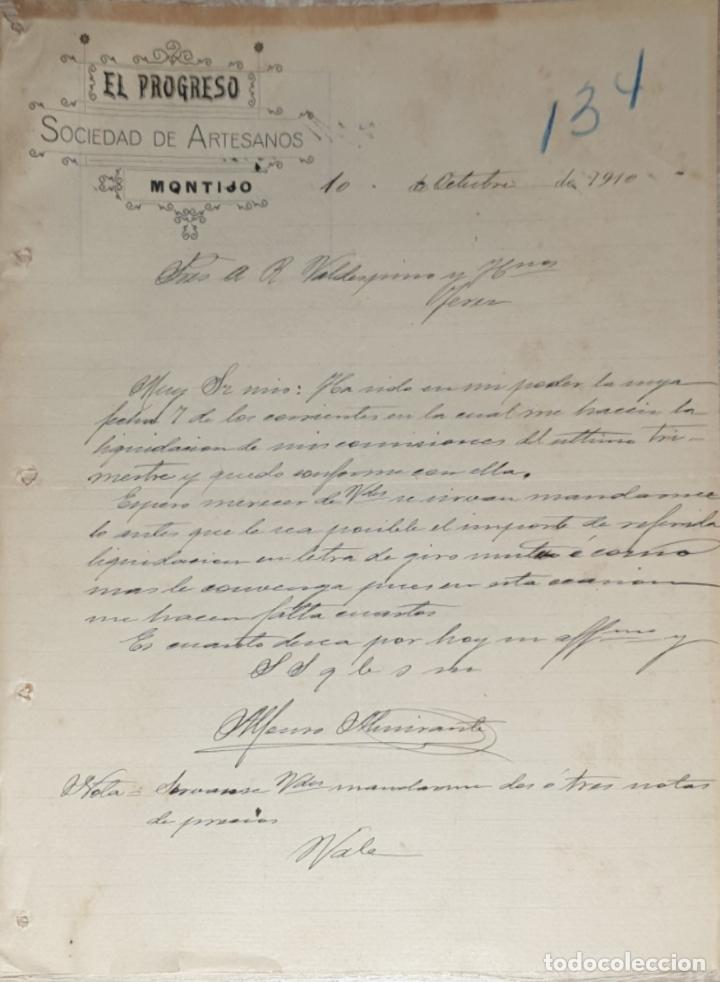 EL PROGRESO
SOCIEDAD DE ARTESANOS
MONTIJO
134
10 de Octubre de 1910
Sres A R Valdespino y Hnos
Jerez
Muy Sr mio: Ha sido en mi poder la suya
fecha 7 de los corrientes en la cual me hacen la
liquidacion de mis comisiones del ultimo tri-
mestre y quedo conforme con ella.
Espero merecer de Vdes se sirvan mandarme
lo antes que le sea posible el importe de referida
liquidacion en letra de giro mutuo é como
mas le convenga pues en esta ocasion
me hacen falta cuartos
Es cuanto desea por hoy su affmo y
S S q b s m
Alfonso Almirante
Nota = Sirvanse Vdes mandarme dos ó tres notas
de precios
Vale
todocoleccion.net